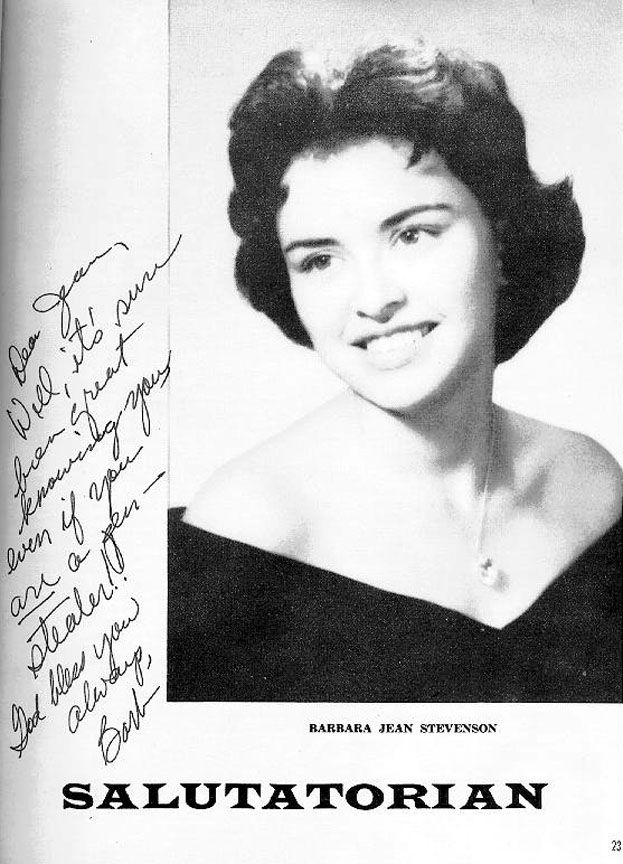 Dear Jean,
Well, it's sure
been great
knowing you
even if you
are a pen-
stealer!!
God bless you
always,
Barb
BARBARA JEAN STEVENSON
SALUTATORIAN
23